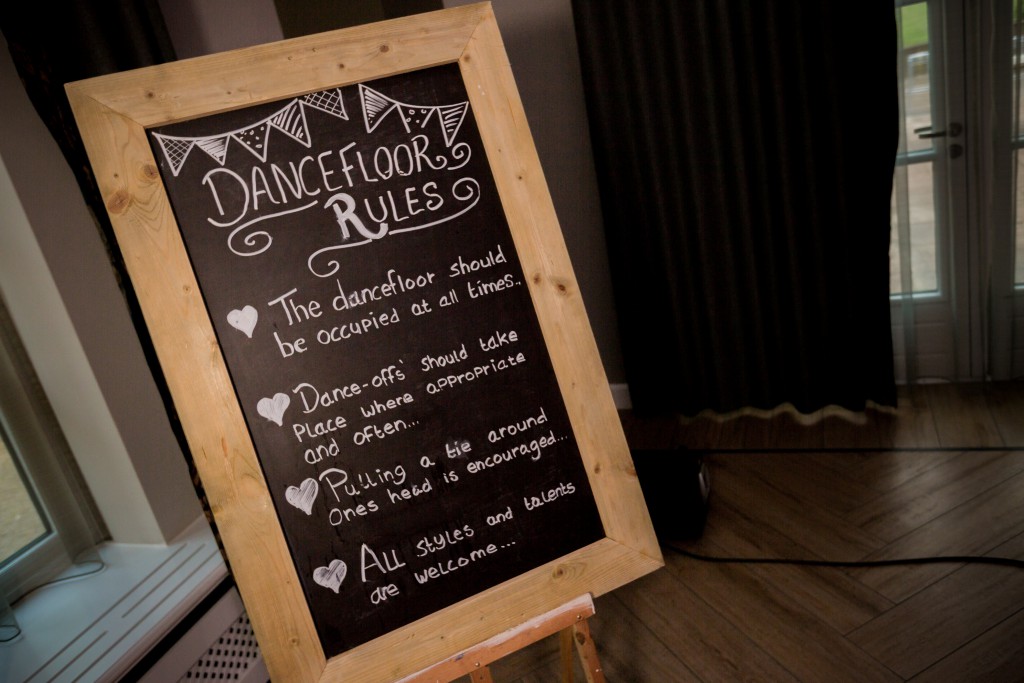 DANCEFLOOR
RULES
The dancefloor should
be occupied at all times..
Dance-offs' should take
Place where appropriate
and often...
Pulling a tie around
Ones head is encouraged...
All styles and talents
are welcome...